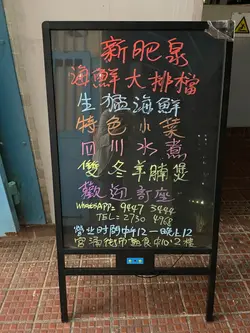 新肥泉
海鮮大排檔
生猛海鮮
特色小菜
四川水煮
雙冬羊腩煲
歡迎訂座
WhatsAPP= 9447 3444
TEL= 2730 4968
營业时間中午12—晚上12
官涌街市熟食中心2樓